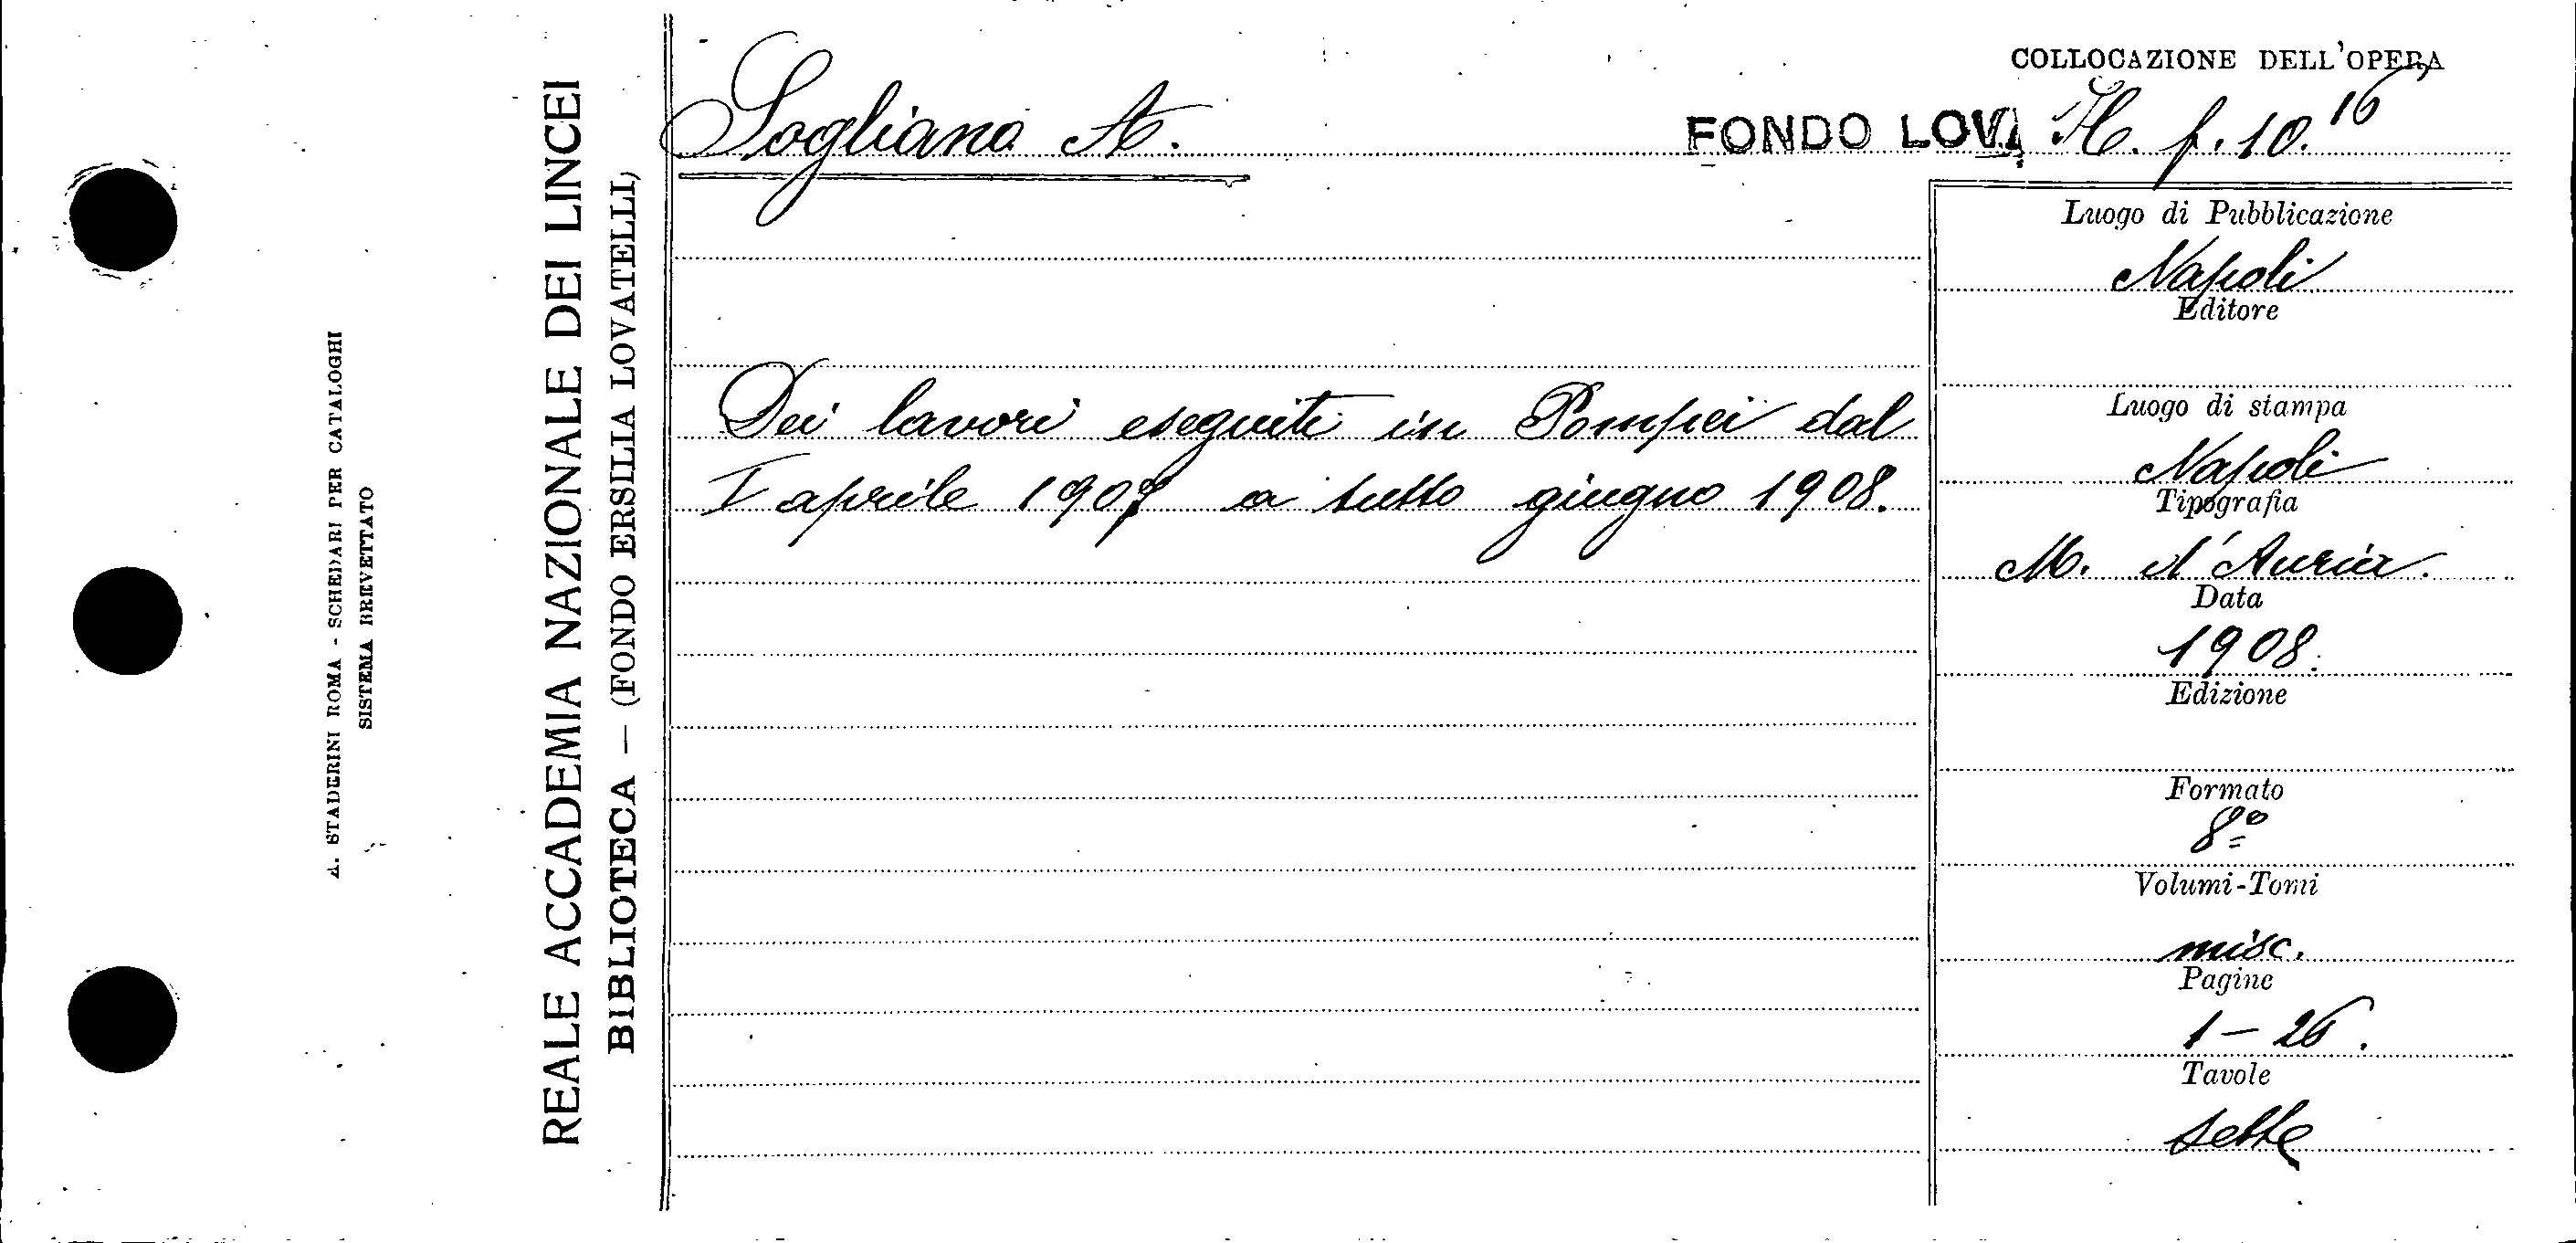 A. STADERINI ROMA - SCHEDARI PER CATALOGHI
SISTEMA BREVETTATO
REALE ACCADEMIA NAZIONALE DEI LINCEI
BIBLIOTECA — (FONDO ERSILIA LOVATELLI)
COLLOCAZIONE DELL'OPERA
Sogliano A.
FONDO LOVA H. f. 10.16
Dei lavori eseguiti in Pompei dal
I aprile 1907 a tutto giugno 1908.
Luogo di Pubblicazione
Napoli
Editore
Luogo di stampa
Napoli
Tipografia
M. d'Auria.
Data
1908.
Edizione
Formato
8º
Volumi-Tomi
misc.
Pagine
1 - 26.
Tavole
sette